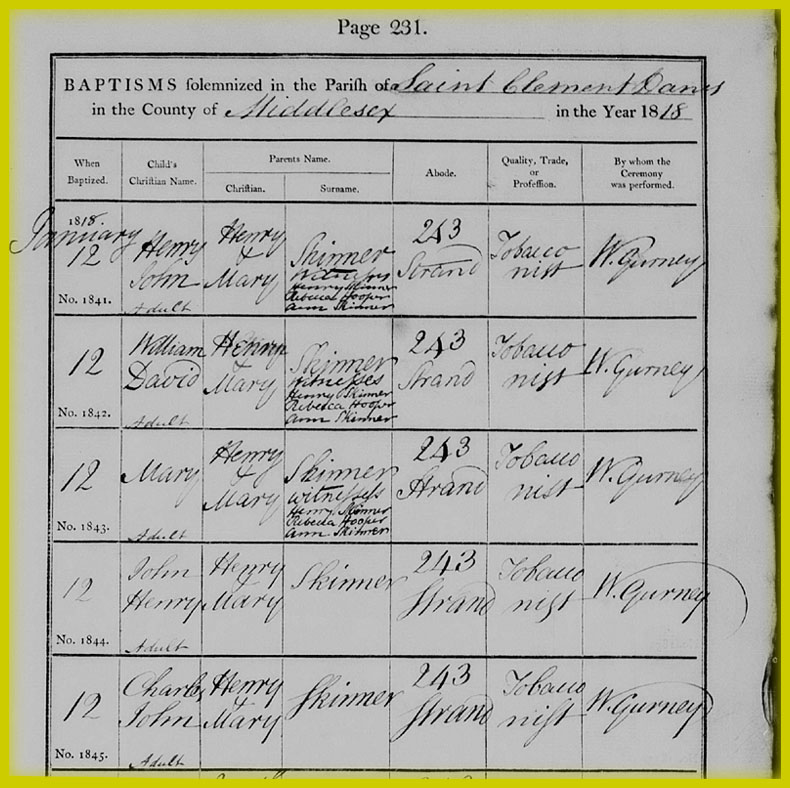 Page 231.
BAPTISMS solemnized in the Parish of Saint Clement Danes
in the County of Middlesex in the Year 1818
When Baptized. Child's Christian Name. Parents Name. Christian. Surname. Abode. Quality, Trade, or Profession. By whom the Ceremony was performed.
1818.
January
12 Henry John Henry & Mary Skinner 243 Strand Tobacconist W. Gurney
witnesses
Henry Skinner
Rebecca Hooper
Ann Skinner
No. 1841. Adult
12 William David Henry & Mary Skinner 243 Strand Tobacconist W. Gurney
witnesses
Henry Skinner
Rebecca Hooper
Ann Skinner
No. 1842. Adult
12 Mary Henry & Mary Skinner 243 Strand Tobacconist W. Gurney
witnesses
Henry Skinner
Rebecca Hooper
Ann Skinner
No. 1843. Adult
12 John Henry Henry & Mary Skinner 243 Strand Tobacconist W. Gurney
No. 1844. Adult
12 Charles John Henry & Mary Skinner 243 Strand Tobacconist W. Gurney
No. 1845. Adult